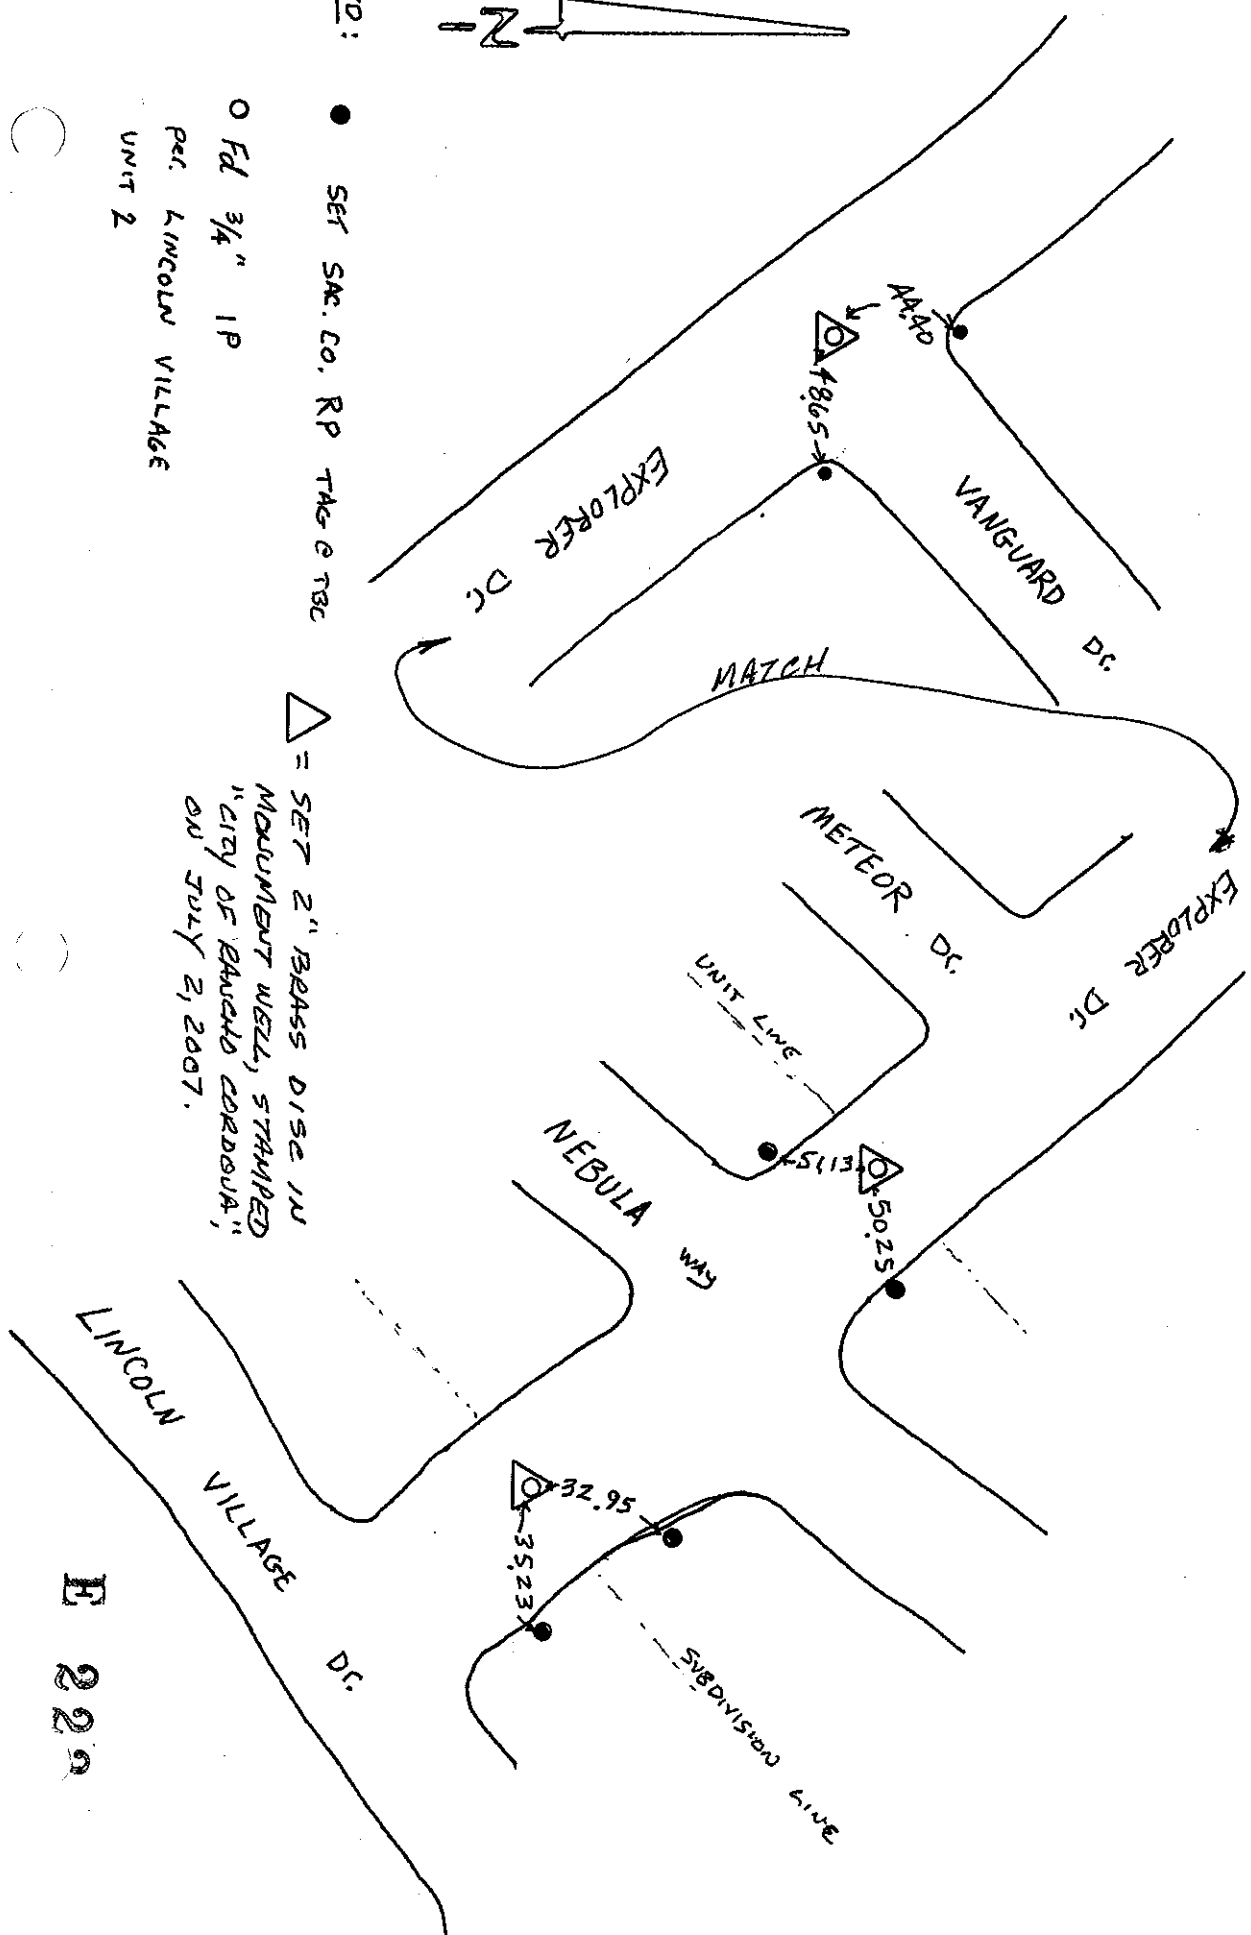 N
● SET SAC. CO. RP TAG @ TBC
○ Fd 3/4" IP
per. LINCOLN VILLAGE
UNIT 2
△ = SET 2" BRASS DISC IN
MONUMENT WELL, STAMPED
"CITY OF RANCHO CORDOVA",
ON JULY 2, 2007.
44.40
48.65
VANGUARD Dr.
EXPLORER Dr.
MATCH
EXPLORER Dr.
METEOR Dr.
UNIT LINE
51.13
50.25
NEBULA WAY
32.95
35.23
SUBDIVISION LINE
LINCOLN VILLAGE Dr.
E 22